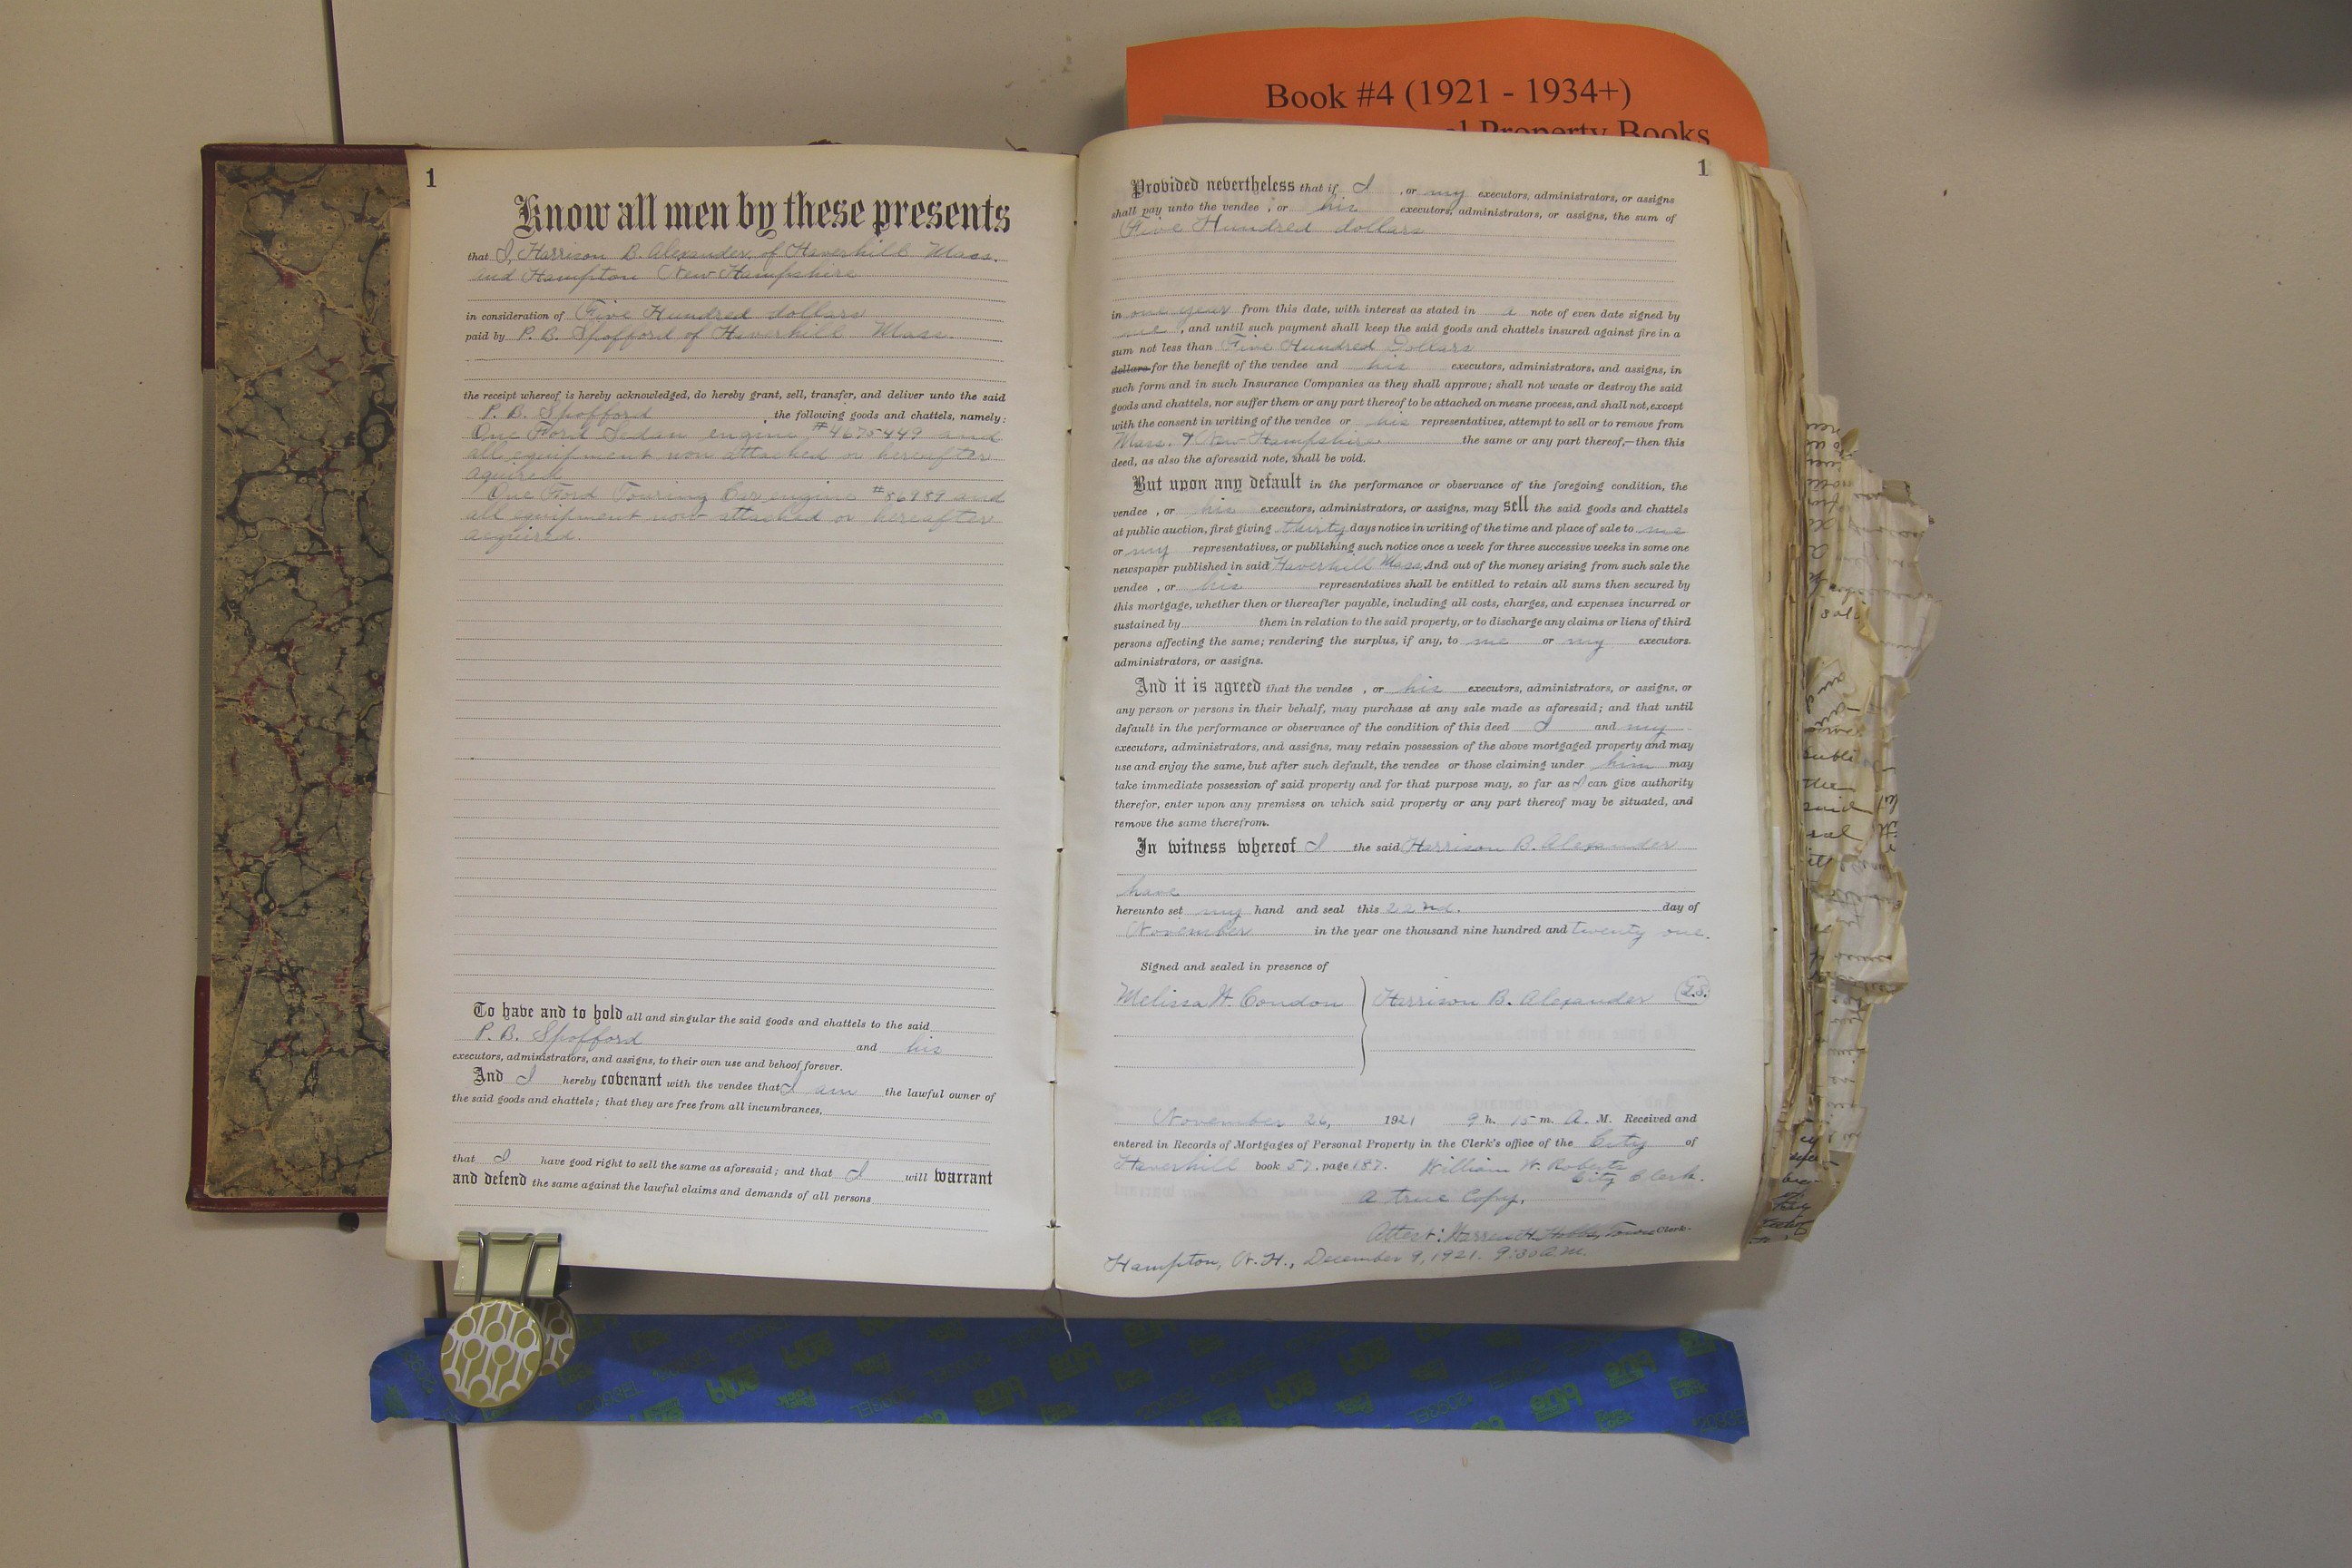 Book #4 (1921 - 1934+)
Property Books
1
Know all men by these presents
that I, Harrison B. Alexander, of Haverhill Mass.
and Hampton New Hampshire
in consideration of Five Hundred dollars
paid by P. B. Spofford of Haverhill Mass.
the receipt whereof is hereby acknowledged, do hereby grant, sell, transfer, and deliver unto the said
P. B. Spofford the following goods and chattels, namely:
One Ford Sedan engine #4675449 and
all equipment now attached or hereafter
aquired
One Ford Touring Car engine and
all equipment now attached or hereafter
acquired.
To have and to hold all and singular the said goods and chattels to the said
P. B. Spofford and his
executors, administrators, and assigns, to their own use and behoof forever.
And I hereby covenant with the vendee that I am the lawful owner of
the said goods and chattels; that they are free from all incumbrances,
that I have good right to sell the same as aforesaid; and that I will warrant
and defend the same against the lawful claims and demands of all persons
1
Provided nevertheless that if I , or my executors, administrators, or assigns
shall pay unto the vendee , or his executors, administrators, or assigns, the sum of
Five Hundred dollars
in one year from this date, with interest as stated in a note of even date signed by
me , and until such payment shall keep the said goods and chattels insured against fire in a
sum not less than Five Hundred Dollars
dollars for the benefit of the vendee and his executors, administrators, and assigns, in
such form and in such Insurance Companies as they shall approve; shall not waste or destroy the said
goods and chattels, nor suffer them or any part thereof to be attached on mesne process, and shall not, except
with the consent in writing of the vendee or his representatives, attempt to sell or to remove from
Mass. & New Hampshire the same or any part thereof,—then this
deed, as also the aforesaid note, shall be void.
But upon any default in the performance or observance of the foregoing condition, the
vendee , or his executors, administrators, or assigns, may sell the said goods and chattels
at public auction, first giving thirty days notice in writing of the time and place of sale to me
or my representatives, or publishing such notice once a week for three successive weeks in some one
newspaper published in said Haverhill Mass. And out of the money arising from such sale the
vendee , or his representatives shall be entitled to retain all sums then secured by
this mortgage, whether then or thereafter payable, including all costs, charges, and expenses incurred or
sustained by them in relation to the said property, or to discharge any claims or liens of third
persons affecting the same; rendering the surplus, if any, to me or my executors.
administrators, or assigns.
And it is agreed that the vendee , or his executors, administrators, or assigns, or
any person or persons in their behalf, may purchase at any sale made as aforesaid; and that until
default in the performance or observance of the condition of this deed I and my
executors, administrators, and assigns, may retain possession of the above mortgaged property and may
use and enjoy the same, but after such default, the vendee or those claiming under him may
take immediate possession of said property and for that purpose may, so far as I can give authority
therefor, enter upon any premises on which said property or any part thereof may be situated, and
remove the same therefrom.
In witness whereof I the said Harrison B. Alexander
have
hereunto set my hand and seal this 22nd. day of
November in the year one thousand nine hundred and twenty one.
Signed and sealed in presence of
Melissa W. Condon Harrison B. Alexander (L.S.)
November 26, 1921 9 h. 15 m. A. M. Received and
entered in Records of Mortgages of Personal Property in the Clerk's office of the City of
Haverhill book 57. page 187. William W. Roberts
City Clerk.
A true Copy,
Attest: Warren H. Hobbs, Town Clerk.
Hampton, N. H., December 9, 1921. 9:30 A.M.